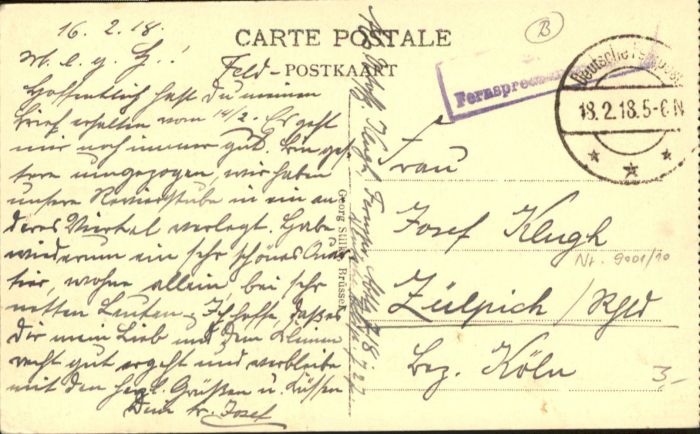 16. 2. 18.
CARTE POSTALE
Feld-POSTKAART
M. l. g. G..!
Hoffentlich hast Du meinen
Brief erhalten vom 14/2. Es geht
mir noch immer gut. Bin ges-
tern umgezogen, wir haben
unsere Revierstube in ein an-
deres Viertel verlegt. Habe
wiederum ein sehr schönes Quar-
tier, wohne allein bei sehr
netten Leuten. Ich hoffe, daß es
Dir mein Lieb und dem Kleinen
recht gut ergeht und verbleibe
mit den herzl. Grüßen u. Küssen
Dein tr. Josef
Klugh
Georg Stilke, Brüssel
B
Fernsprech
Deutsche Feldpost
18.2.18. 5-6 N
Frau
Josef Klugh
Nr. 9001/10
Zülpich / Rhld
Bez. Köln
3,-